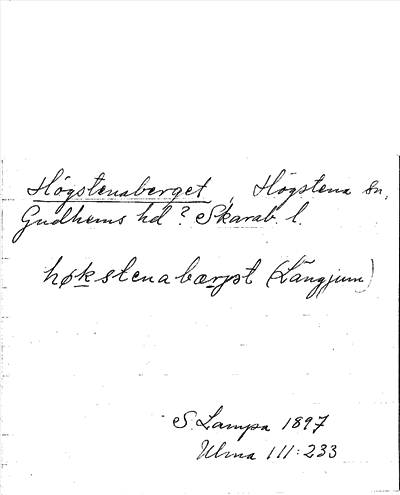 Högstenaberget, Högstena sn,
Gudhems hd? Skarab. l.
høkstenabærjst (Långjum)
S. Lampa 1897
Ulma 111:233